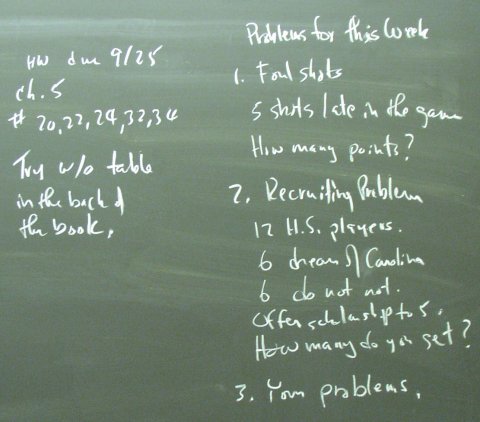 HW due 9/25
ch. 5
# 20,22,24,32,34
Try w/o table
in the back of
the book.
Problems for this Week
1. Foul shots
5 shots late in the game
How many points?
2. Recruiting Problem
12 H.S. players.
6 dream of Carolina
6 do not not.
Offer scholarship to 5.
How many do you get?
3. Your problems.